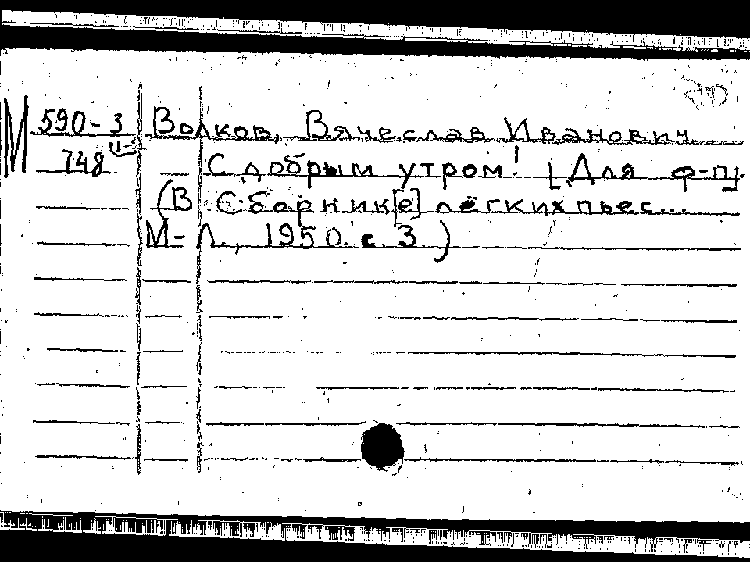 М 590-3 Волков, Вячеслав Иванович
748 С добрым утром! [Для ф-п].
(В Сборник[е] легких пьес...
М-Л., 1950. с 3.)